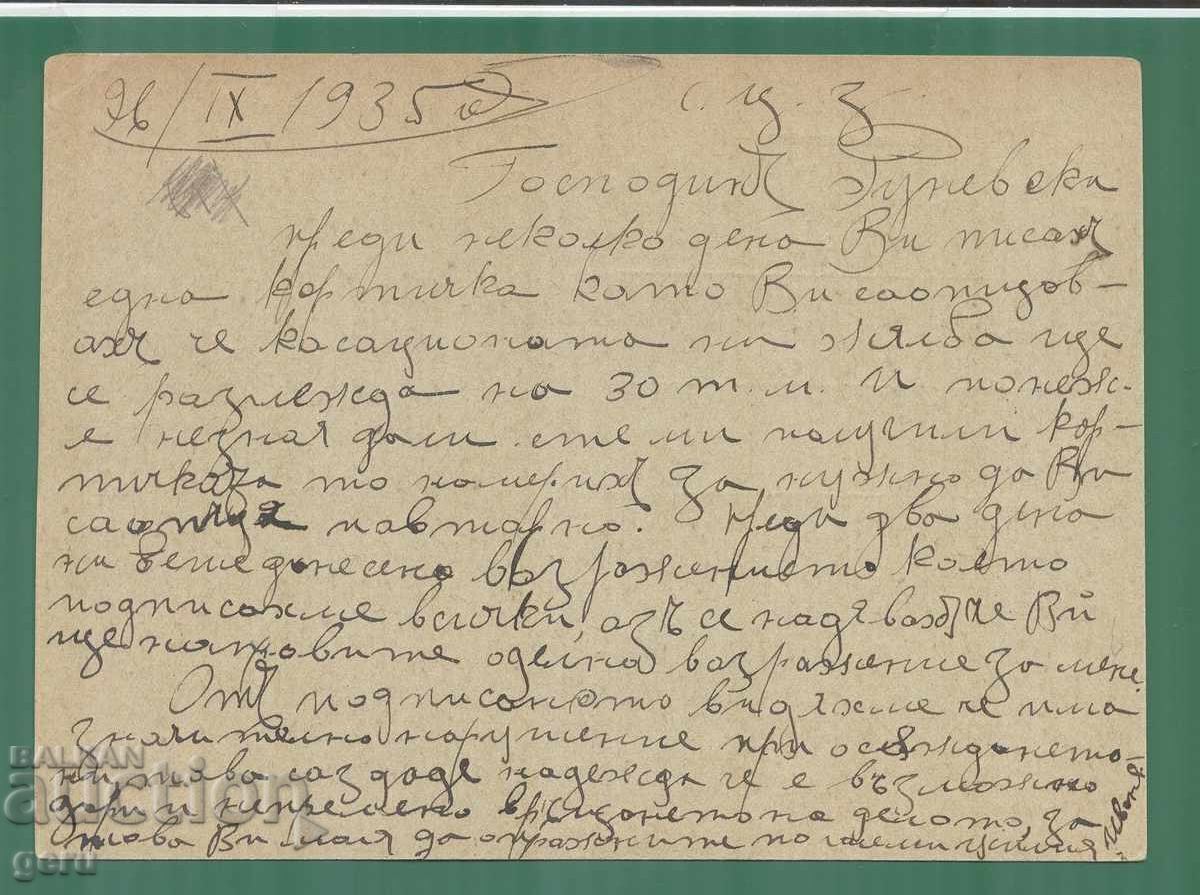 26/IX 1935 г.
с. ц. з.
Господинъ Гуневски
преди неколко дена Ви писахъ
една картичка като Ви саопщов-
ахъ че касационата ни жялба ще
се разглежда на 30 т. м. И понеж-
е незная дали сте ми получили кар-
тичката то намерихъ за нужно да Ви
саопща повтарно. Преди два дена
ни беше донесено возражението което
подписахме всички, азъ се надявахъ че Вий
ще направите оделна возражение за мене.
Отъ подписаното видяхме че има
значително нарушение при осъждането
ни, това саздаде надежда че е възможно
дори и непремено връщането на делото, за
това Ви моля да опражните по големи усилия
Иванъ
BALKAN
auction
geru